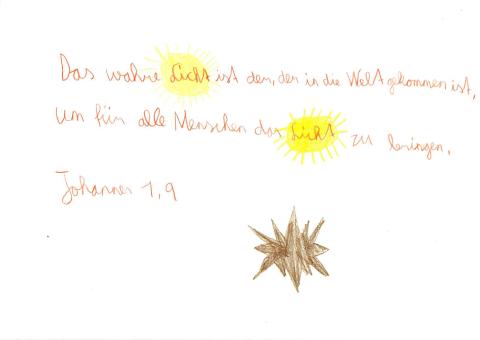 Das wahre Licht ist der, der in die Welt gekommen ist,
um für alle Menschen das Licht zu bringen.
Johannes 1,9